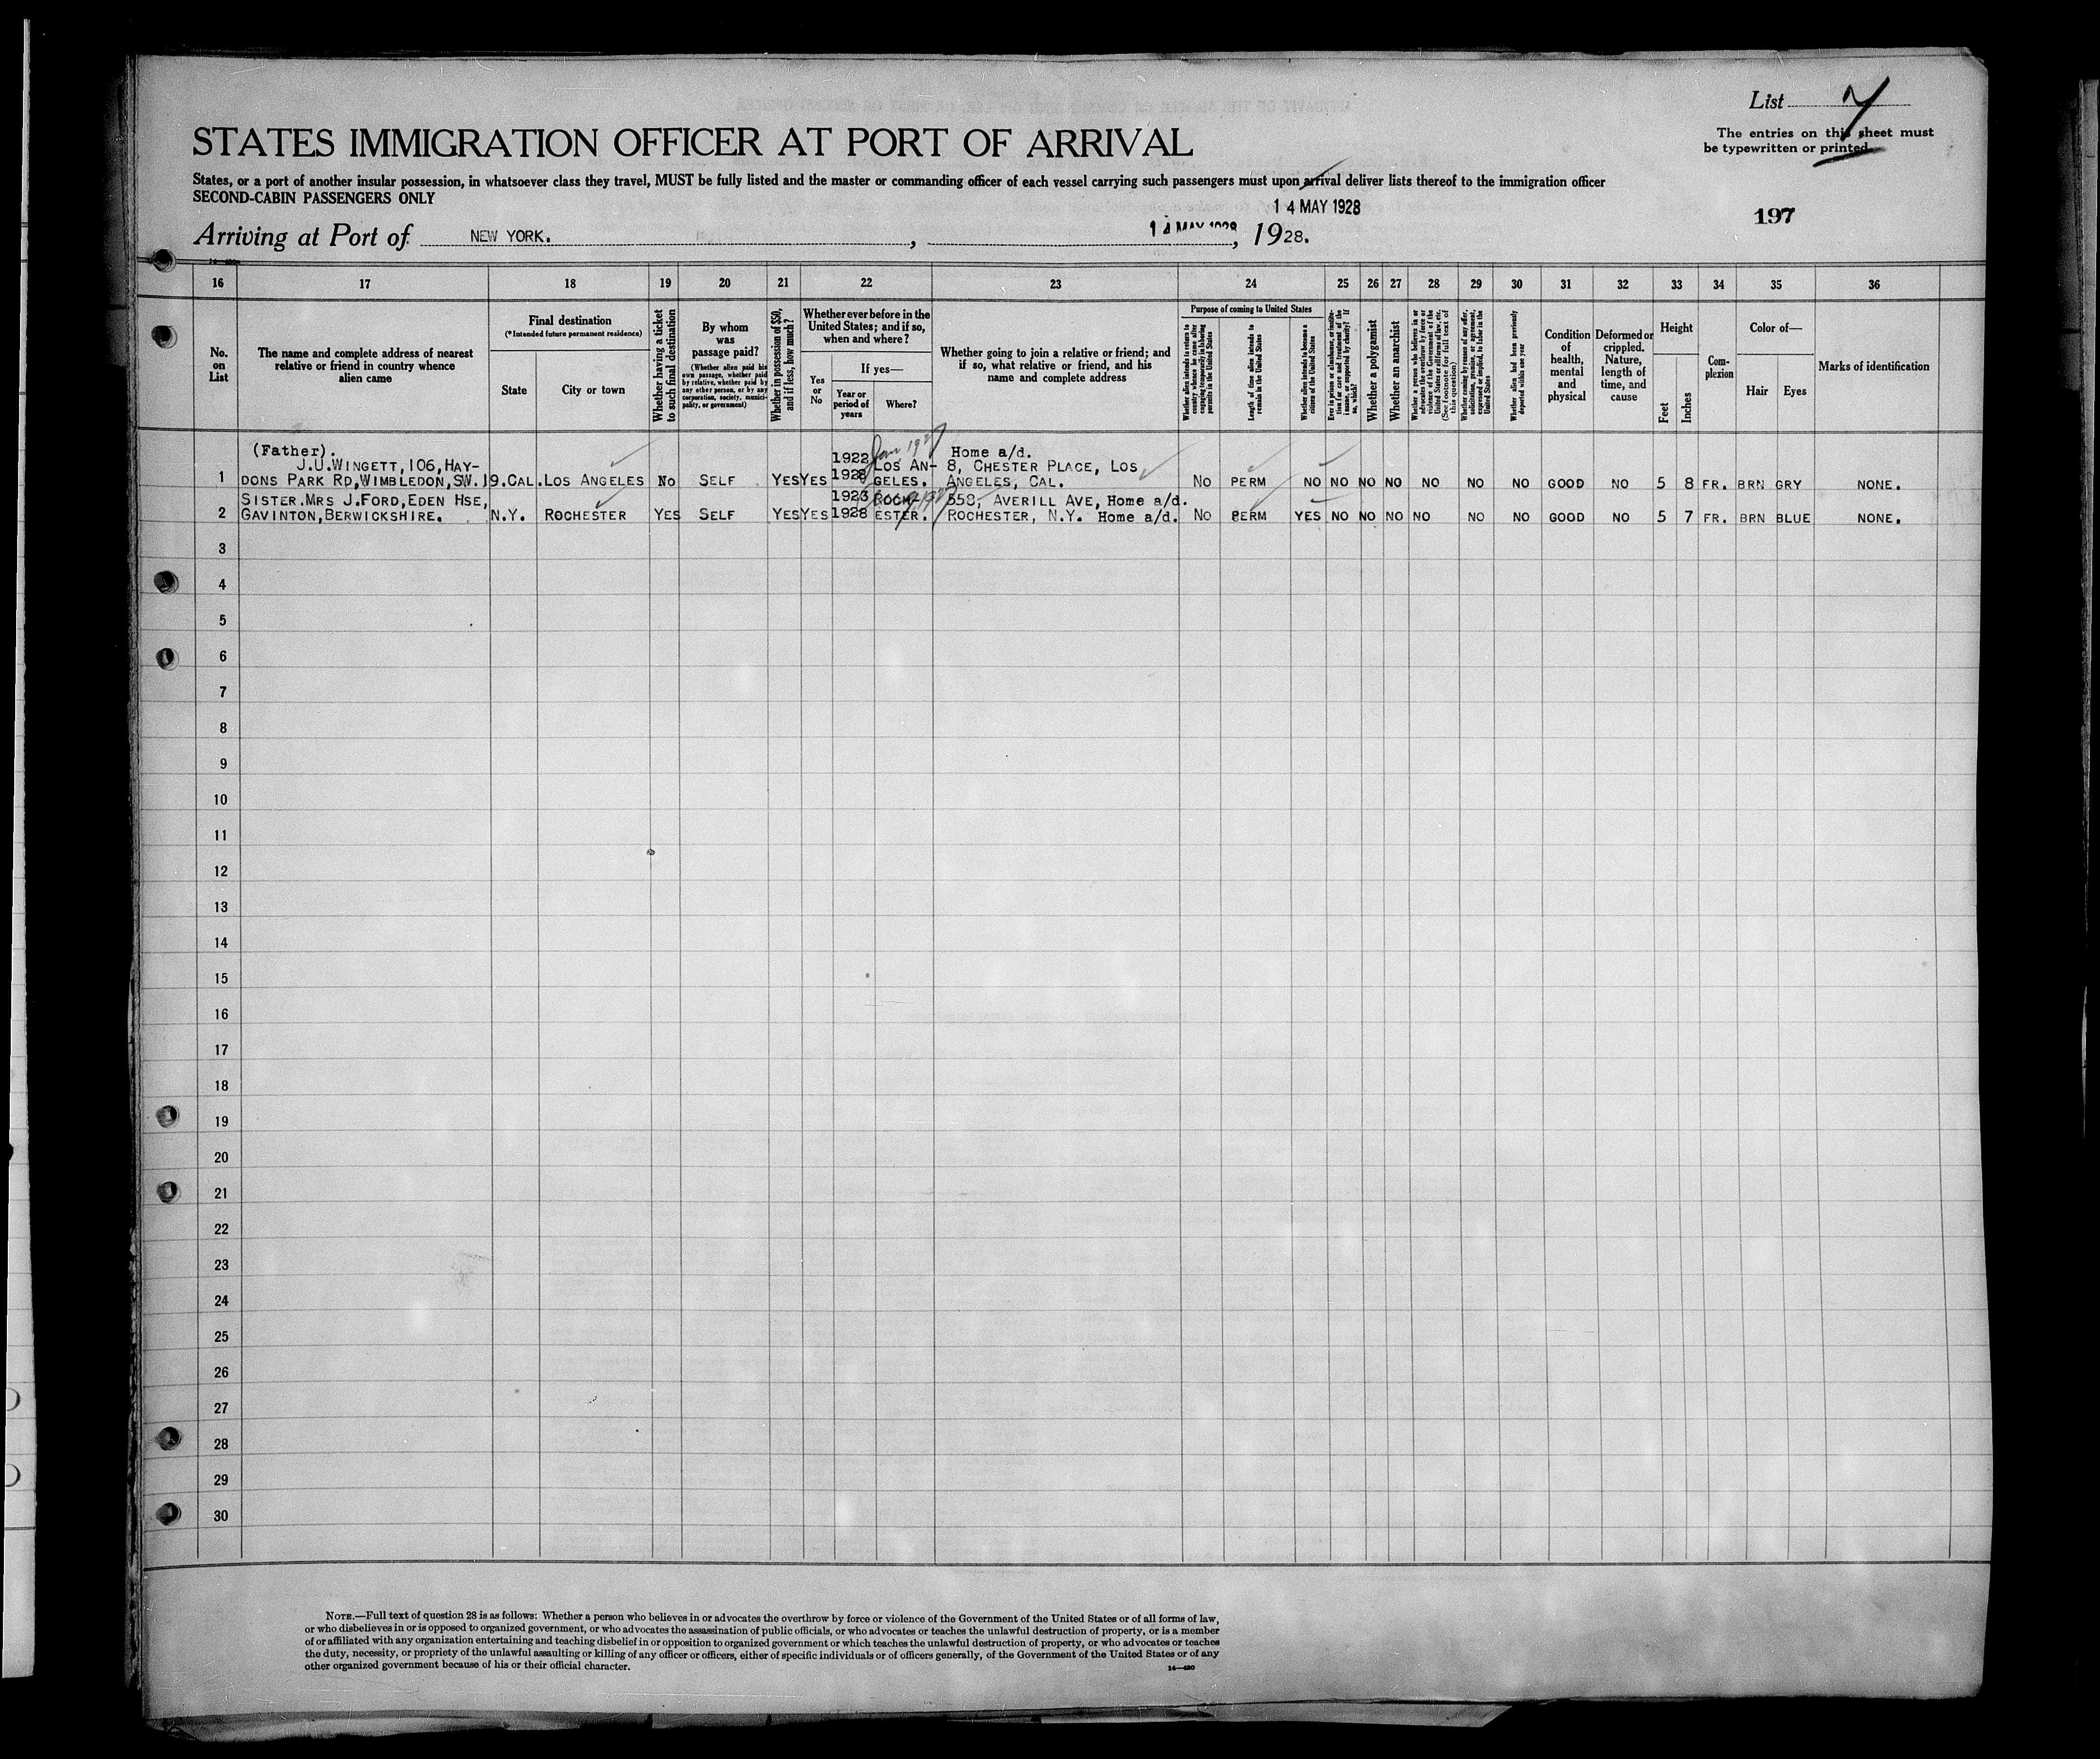 List 7
The entries on this sheet must
be typewritten or printed
STATES IMMIGRATION OFFICER AT PORT OF ARRIVAL
States, or a port of another insular possession, in whatsoever class they travel, MUST be fully listed and the master or commanding officer of each vessel carrying such passengers must upon arrival deliver lists thereof to the immigration officer
SECOND-CABIN PASSENGERS ONLY
14 MAY 1928
197
Arriving at Port of NEW YORK. , 14 MAY 1928, 1928.
16 17 18 19 20 21 22 23 24 25 26 27 28 29 30 31 32 33 34 35 36
No.
on
List
The name and complete address of nearest
relative or friend in country whence
alien came
Final destination
(*Intended future permanent residence)
State
City or town
Whether having a ticket
to such final destination
By whom
was
passage paid?
(Whether alien paid his
own passage, whether paid
by relative, whether paid by
any other person, or by any
corporation, society, munici-
pality, or government)
Whether in possession of $50,
and if less, how much?
Whether ever before in the
United States; and if so,
when and where?
Yes
or
No
If yes—
Year or
period of
years
Where?
Whether going to join a relative or friend; and
if so, what relative or friend, and his
name and complete address
Purpose of coming to United States
Whether alien intends to return to
country whence he came after
engaging temporarily in laboring
pursuits in the United States
Length of time alien intends to
remain in the United States
Whether alien intends to become a
citizen of the United States
Ever in prison or almshouse, or institu-
tion for care and treatment of the
insane, or supported by charity? If
so, which?
Whether a polygamist
Whether an anarchist
Whether a person who believes in or
advocates the overthrow by force or
violence of the Government of the
United States or all forms of law, etc.
(See footnote for full text of
this question)
Whether coming by reason of any offer,
solicitation, promise, or agreement,
expressed or implied, to labor in the
United States
Whether alien had been previously
deported within one year
Condition
of
health,
mental
and
physical
Deformed or
crippled.
Nature,
length of
time, and
cause
Height
Feet
Inches
Com-
plexion
Color of—
Hair
Eyes
Marks of identification
(Father). 1922 Jan 192 Home a/d.
J.U.WINGETT, 106, HAY- LOS AN- 8, CHESTER PLACE, LOS
1 DONS PARK RD, WIMBLEDON, SW.19. CAL. LOS ANGELES NO SELF YES YES 1928 GELES. ANGELES, CAL. NO PERM NO NO NO NO NO NO NO GOOD NO 5 8 FR. BRN GRY NONE.
SISTER.MRS J.FORD, EDEN HSE, 1923 ROCH- 558, AVERILL AVE, Home a/d.
2 GAVINTON, BERWICKSHIRE. N.Y. ROCHESTER YES SELF YES YES 1928 ESTER. ROCHESTER, N.Y. Home a/d. NO PERM YES NO NO NO NO NO NO GOOD NO 5 7 FR. BRN BLUE NONE.
3
4
5
6
7
8
9
10
11
12
13
14
15
16
17
18
19
20
21
22
23
24
25
26
27
28
29
30
NOTE.—Full text of question 28 is as follows: Whether a person who believes in or advocates the overthrow by force or violence of the Government of the United States or of all forms of law,
or who disbelieves in or is opposed to organized government, or who advocates the assassination of public officials, or who advocates or teaches the unlawful destruction of property, or is a member
of or affiliated with any organization entertaining and teaching disbelief in or opposition to organized government or which teaches the unlawful destruction of property, or who advocates or teaches
the duty, necessity, or propriety of the unlawful assaulting or killing of any officer or officers, either of specific individuals or of officers generally, of the Government of the United States or of any
other organized government because of his or their official character.
14—430